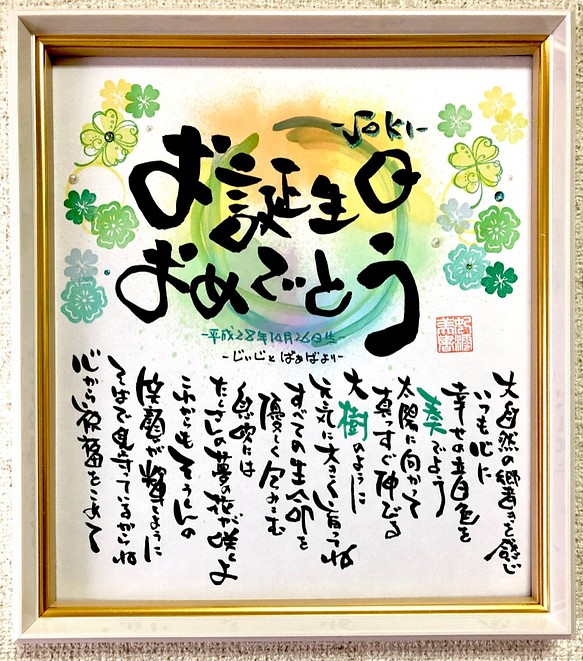 -Soki-
お誕生日
おめでとう
-平成28年10月26日生-
-じぃじと ばぁばより-
大自然の響きを感じ
いつも心に
幸せの音色を
奏でよう
太陽に向かって
真っすぐ伸びる
大樹のように
元気に大きく育ってね
すべての生命を
優しく包みこむ
息吹には
たくさんの夢の花が咲くよ
これからもそうくんの
笑顔が輝くように
そばで見守っているからね
心から祝福をこめて